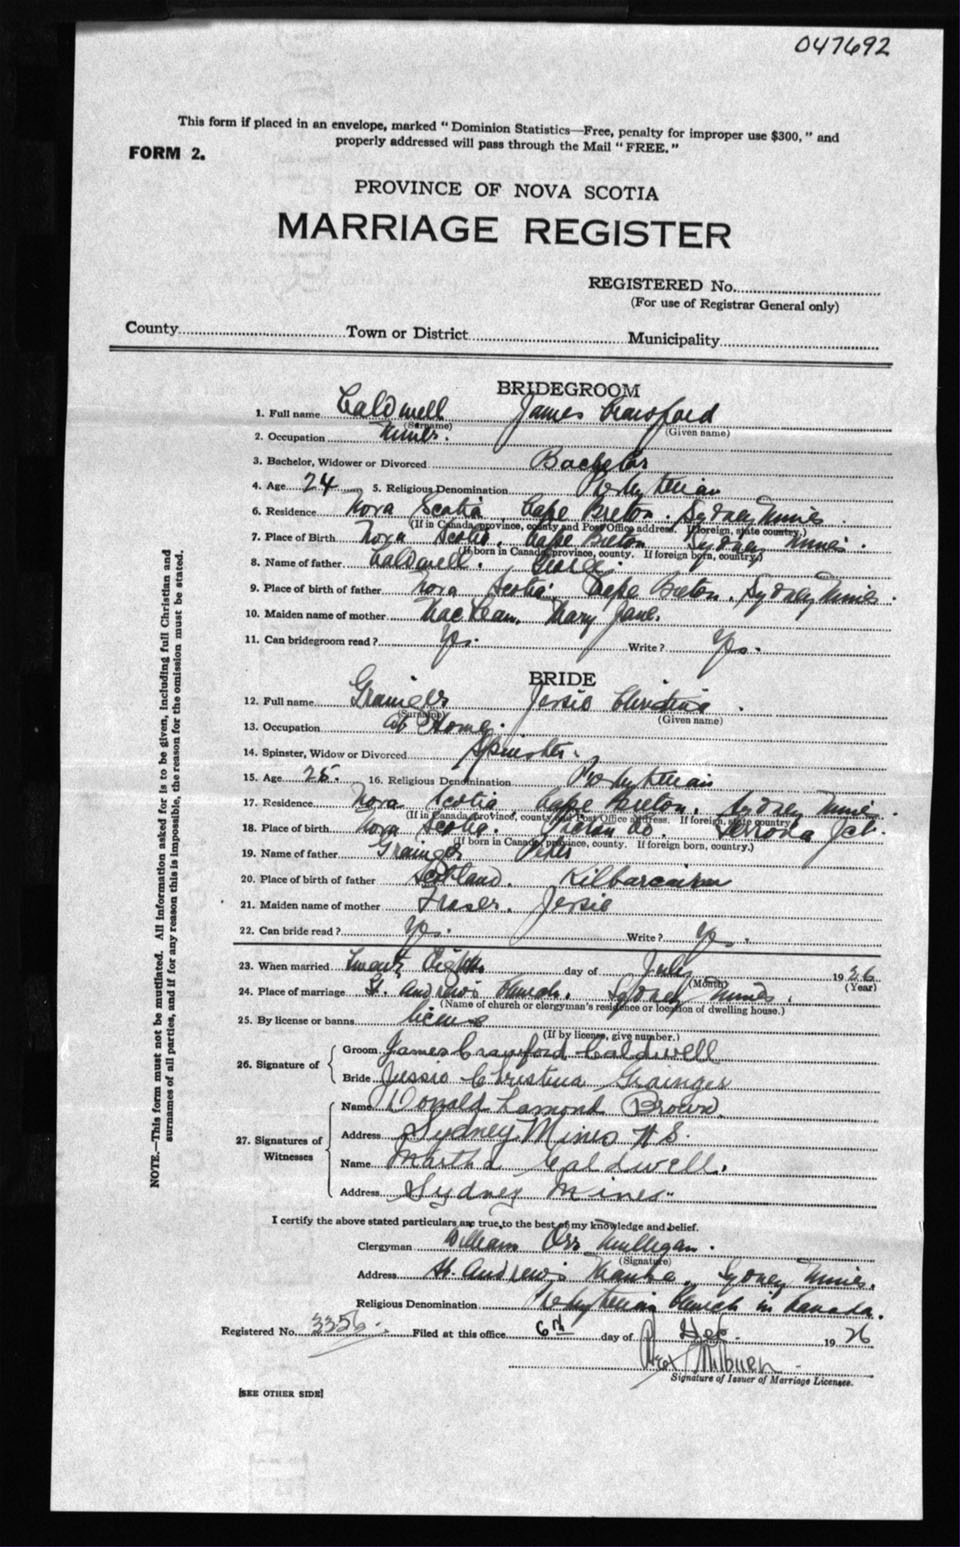 047692
This form if placed in an envelope, marked "Dominion Statistics—Free, penalty for improper use $300," and
properly addressed will pass through the Mail "FREE."
FORM 2.
PROVINCE OF NOVA SCOTIA
MARRIAGE REGISTER
REGISTERED No.
(For use of Registrar General only)
County Town or District Municipality
BRIDEGROOM
1. Full name Caldwell James Crawford
(Surname) (Given name)
2. Occupation Miner.
3. Bachelor, Widower or Divorced Bachelor
4. Age 24 5. Religious Denomination Presbyterian
6. Residence Nova Scotia Cape Breton. Sydney Mines
(If in Canada, province, county and Post Office address. If foreign, state country.)
7. Place of Birth Nova Scotia. Cape Breton Sydney Mines.
(If born in Canada, province, county. If foreign born, country.)
8. Name of father Caldwell. George
9. Place of birth of father Nova Scotia Cape Breton. Sydney Mines.
10. Maiden name of mother MacLean. Mary Jane.
11. Can bridegroom read? Yes. Write? Yes.
BRIDE
12. Full name Grainger Jessie Christina
(Surname) (Given name)
13. Occupation At Home.
14. Spinster, Widow or Divorced Spinster.
15. Age 25. 16. Religious Denomination Presbyterian
17. Residence Nova Scotia Cape Breton. Sydney Mines
(If in Canada, province, county and Post Office address. If foreign, state country.)
18. Place of birth Nova Scotia. Pictou Co. Ferrona Jct.
(If born in Canada, province, county. If foreign born, country.)
19. Name of father Grainger Peter
20. Place of birth of father Scotland. Kilbarchan
21. Maiden name of mother Fraser. Jessie
22. Can bride read? Yes. Write? Yes.
23. When married Twenty Eighth day of July 1926
(Month) (Year)
24. Place of marriage St. Andrew's Church. Sydney Mines.
(Name of church or clergyman's residence or location of dwelling house.)
25. By license or banns license
(If by license, give number.)
26. Signature of
Groom James Crawford Caldwell
Bride Jessie Christina Grainger
27. Signatures of Witnesses
Name Donald Lamond Brown.
Address Sydney Mines N S.
Name Martha Caldwell.
Address Sydney Mines
I certify the above stated particulars are true, to the best of my knowledge and belief.
Clergyman William Orr Mulligan.
(Signature)
Address St. Andrew's Manse, Sydney Mines.
Religious Denomination Presbyterian Church in Canada.
Registered No. 3356 Filed at this office 6th day of 1926
Milburn
Signature of Issuer of Marriage Licenses.
[SEE OTHER SIDE]
NOTE.—This form must not be mutilated. All information asked for is to be given, including full Christian and
surnames of all parties, and if for any reason this is impossible, the reason for the omission must be stated.